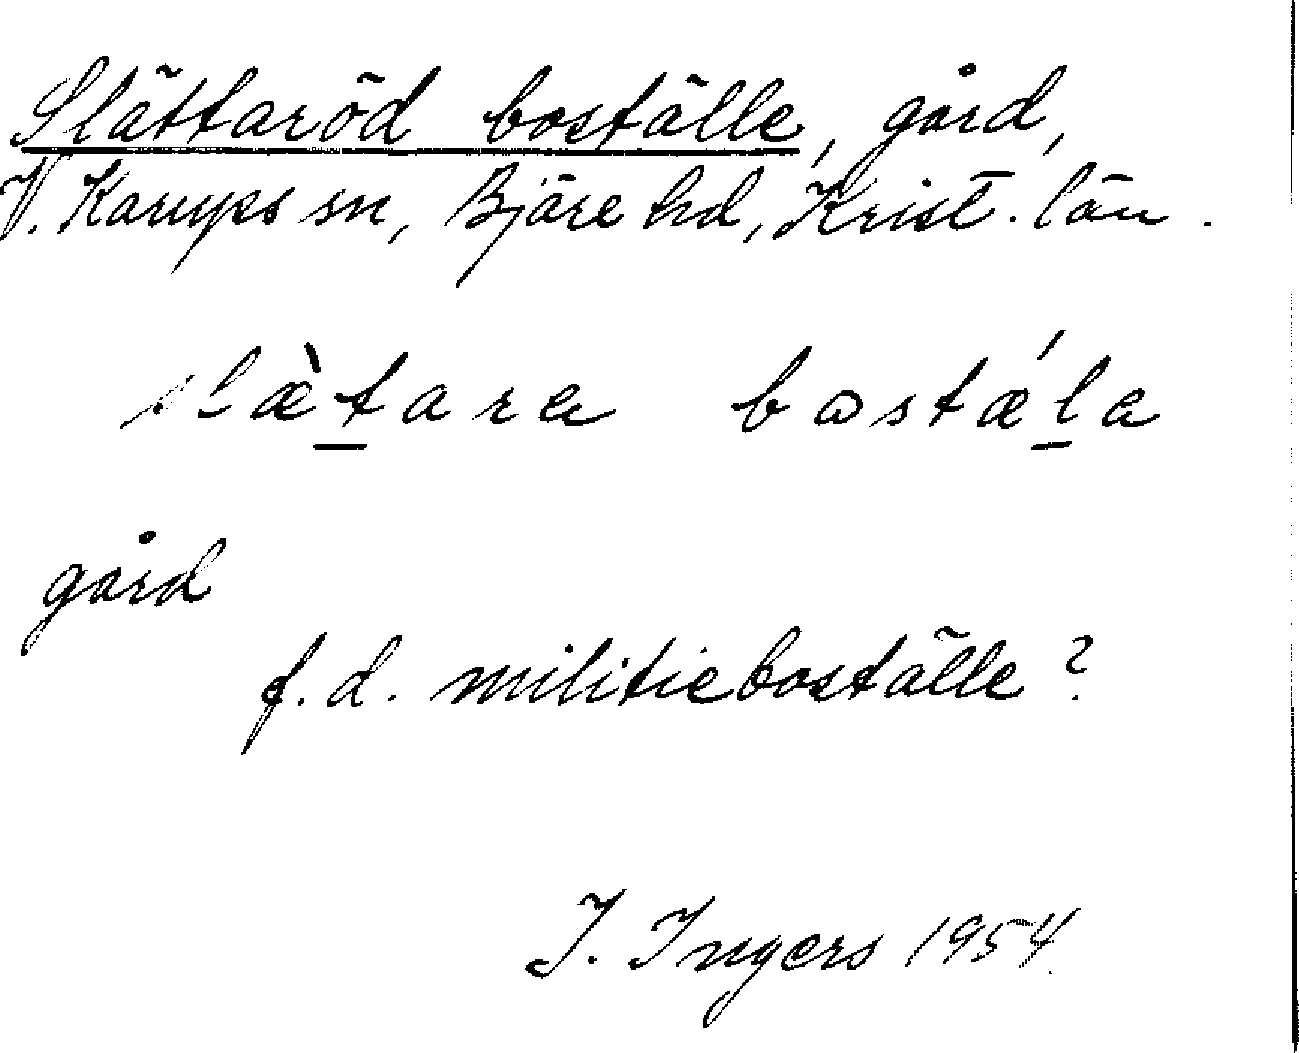 Slättaröd boställe, gård,
V. Karups sn, Bjäre hd, Krist. län.
slæ̀tara bostǽla
gård
f.d. militieboställe?
I. Ingers 1954.